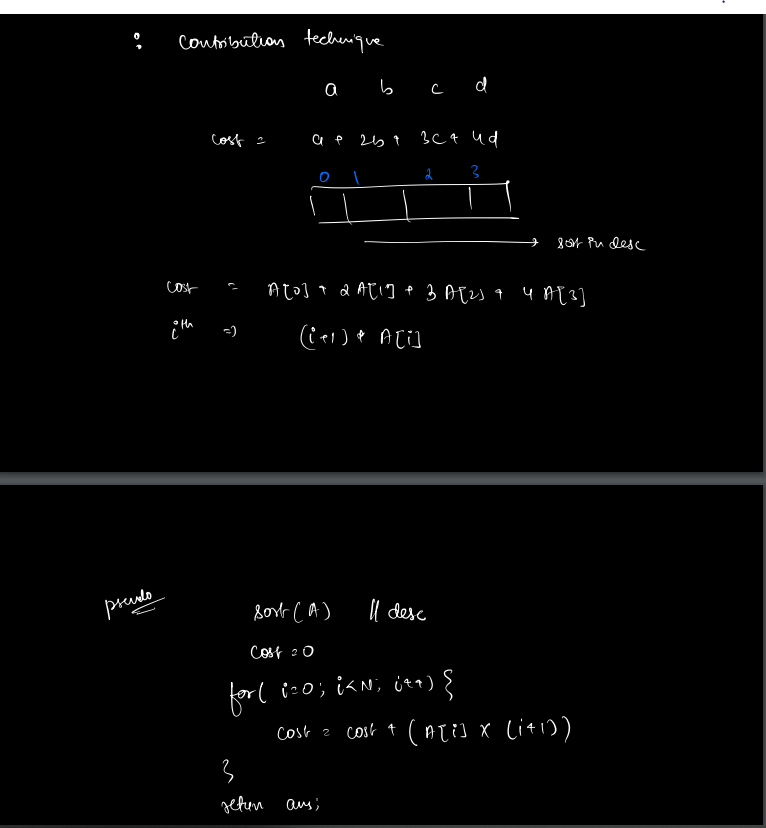 : Contribution technique
a b c d
cost = a + 2b + 3c + 4d
0 1 2 3
sort in desc
cost = A[0] + 2 A[1] + 3 A[2] + 4 A[3]
ith => (i+1) * A[i]
pseudo
sort(A) // desc
cost = 0
for( i=0; i<N; i++) {
cost = cost + (A[i] x (i+1))
}
return ans;